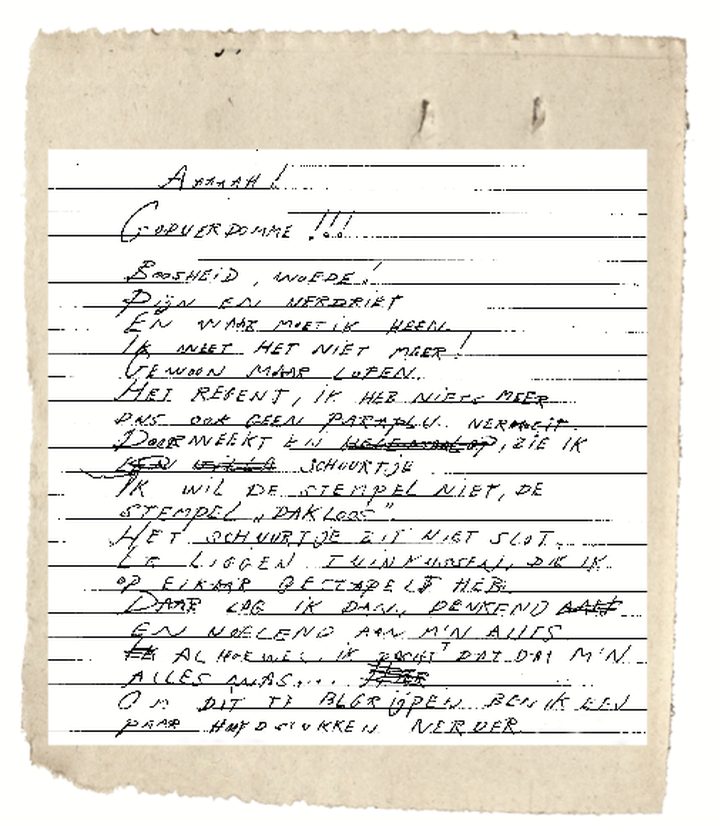 AAAAAH!
GODVERDOMME !!!
BOOSHEID, WOEDE!
PIJN EN VERDRIET
EN WAAR MOET IK HEEN.
IK WEET HET NIET MEER!
GEWOON MAAR LOPEN.
HET REGENT, IK HEB NIETS MEER
DUS OOK GEEN PARAPLU.
DOORWEEKT EN HELEMAAL OP, ZIE IK
EEN SCHUURTJE
IK WIL DE STEMPEL NIET, DE
STEMPEL „DAKLOOS”.
HET SCHUURTJE ZIT NIET SLOT.
ER LIGGEN TUINKUSSENS, DIE IK
OP ELKAAR GESTAPELD HEB.
DAAR LAG IK DAN, DENKEND
EN VOELEND AAN M'N ALLES
ALHOEWEL, IK DACHT DAT DAT M'N
ALLES WAS....
OM DIT TE BEGRIJPEN BEN IK EEN
PAAR HOOFDSTUKKEN VERDER